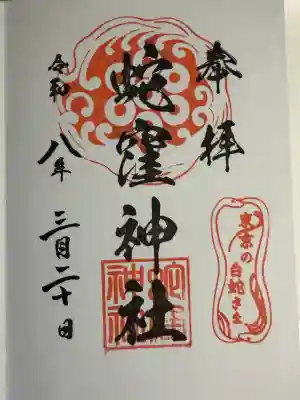 奉拝
東京の
白蛇さま
蛇窪神社
蛇窪
神社
令和八年
三月二十日